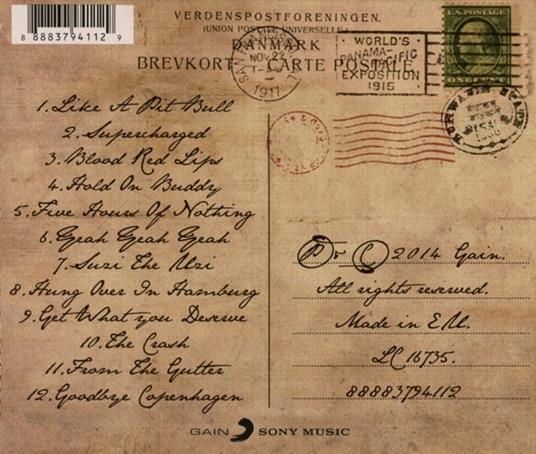 8 88837 94112 9
VERDENSPOSTFORENINGEN.
(UNION POSTALE UNIVERSELLE.)
DANMARK
BREVKORT - CARTE POSTALE
NOV 22
1911
WORLD'S
PANAMA-PACIFIC
EXPOSITION
1915
U.S. POSTAGE
1. Like A Pit Bull
2. Supercharged
3. Blood Red Lips
4. Hold On Buddy
5. Five Hours Of Nothing
6. Yeah Yeah Yeah
7. Suzi The Uzi
8. Hung Over In Hamburg
9. Get What you Deserve
10. The Crash
11. From The Gutter
12. Goodbye Copenhagen
P & C 2014 Gain.
All rights reserved.
Made in E.U.
LC 16735.
88883794112
GAIN SONY MUSIC